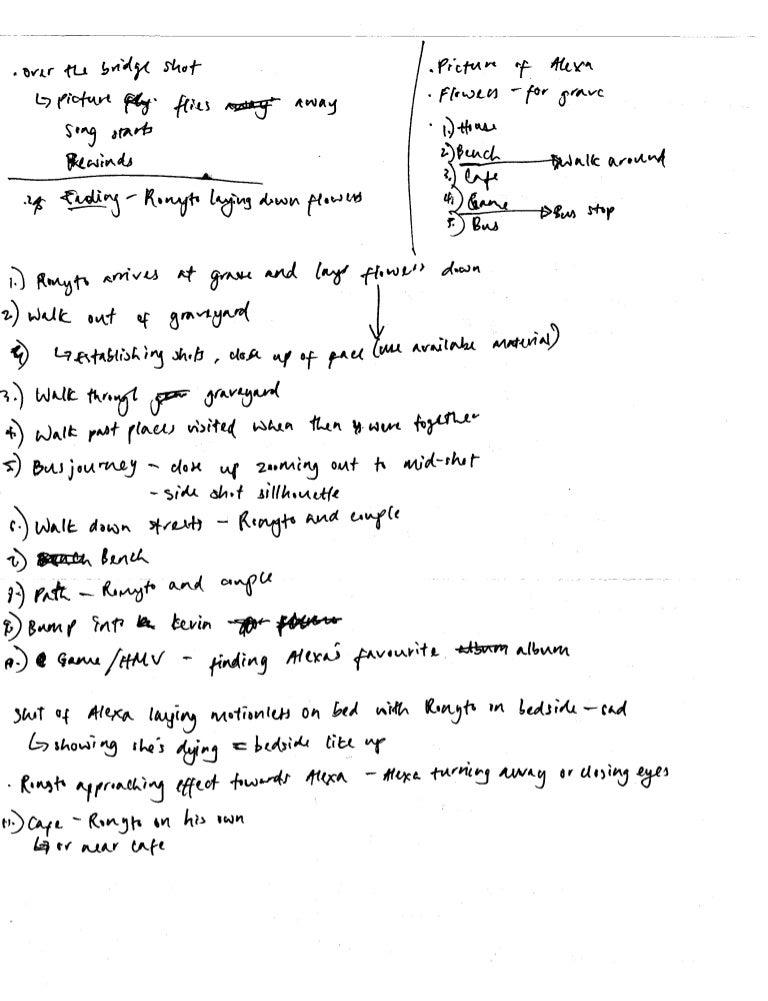 . over the bridge shot
↳ picture flies away
Song starts
Rewinds
Ending - Romyto laying down flowers
. Picture of Alexa
. Flowers - for grave
. 1.) House
2.) Bench → Walk around
3.) Cafe
4.) Game → Bus stop
5.) Bus
1.) Romyto arrives at grave and lays flowers down
2.) Walk out of graveyard
↳ Establishing shots, close up of face (use availabe material)
3.) Walk through graveyard
4.) Walk past places visited when then were together
5.) Bus journey - close up zooming out to mid-shot
- side shot sillhouette
6.) Walk down streets - Romyto and couple
7.) Bench
8.) Path - Romyto and couple
9.) Bump into kevin
10.) Game/HMV - finding Alexa's favourite album
Shot of Alexa laying motionless on bed with Romyto on bedside - sad
↳ showing she's dying = bedside like up
. Romyto approaching effect towards Alexa - Alexa turning away or closing eyes
11.) Cafe - Romyto on his own
↳ or near cafe